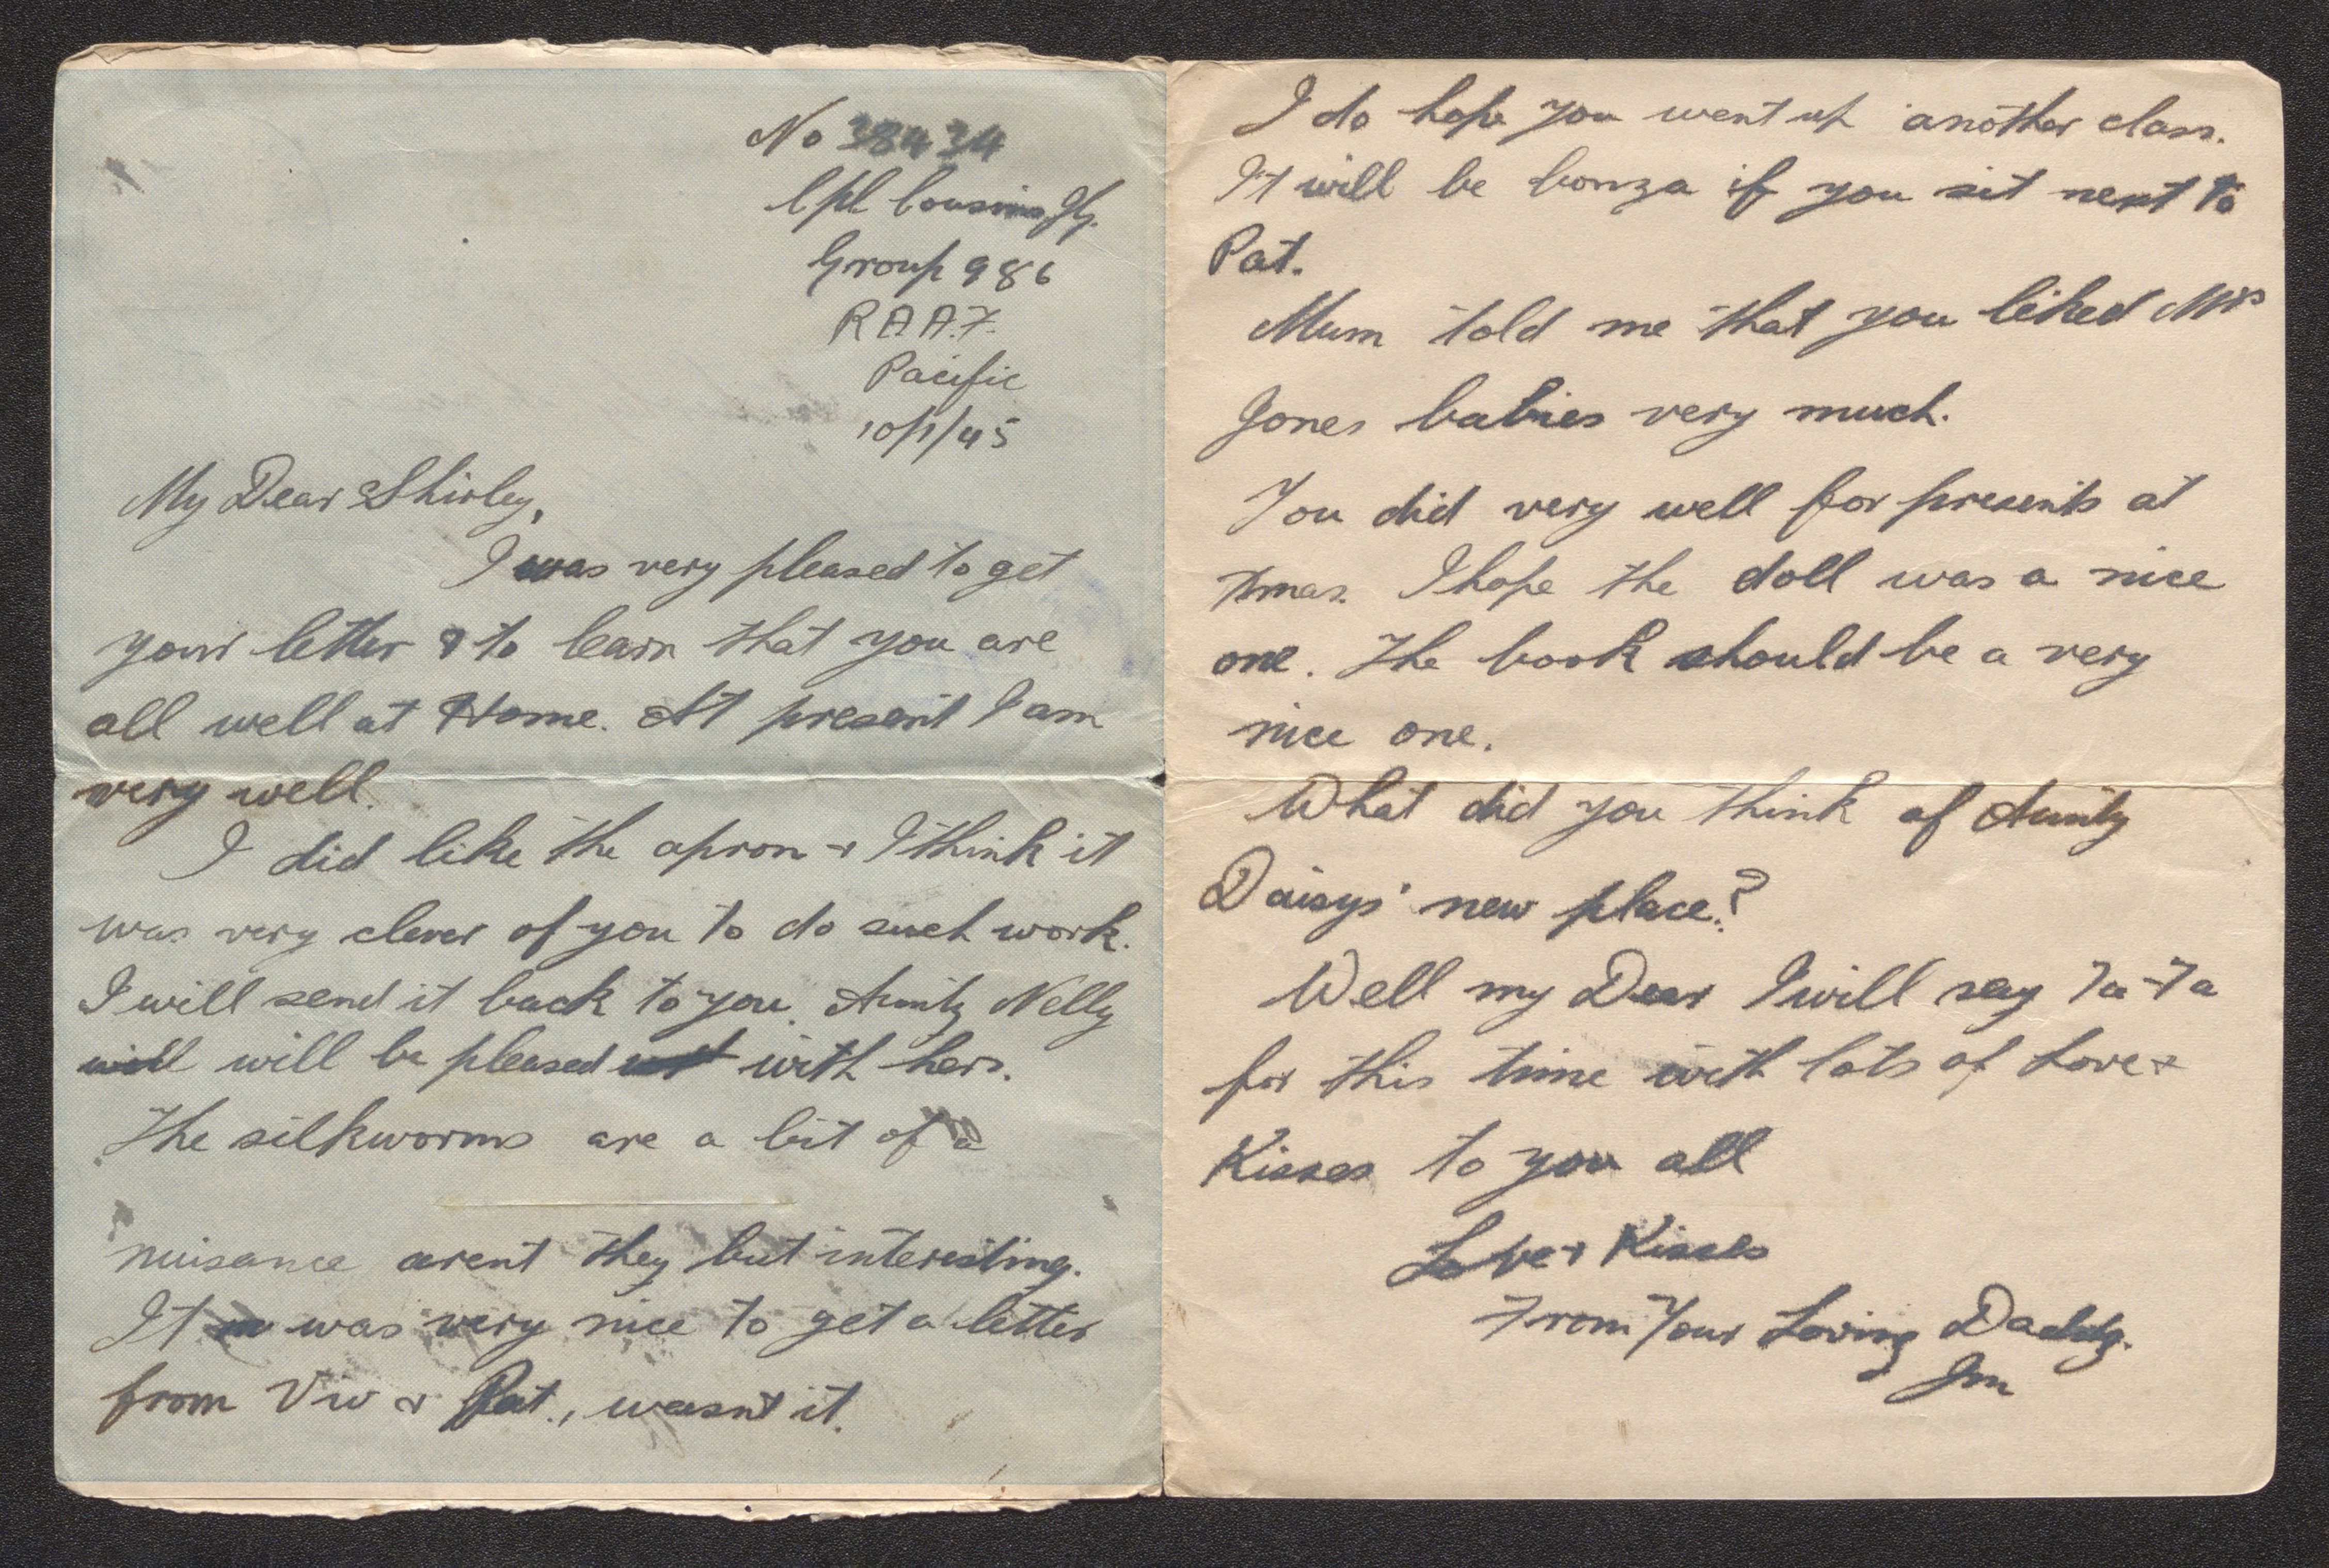 No 38434
Cpl Cousins Jg.
Group 986
R A A.F.
Pacific
10/1/45
My Dear Shirley,
I was very pleased to get
your letter & to learn that you are
all well at Home. At present I am
very well.
I did like the apron & I think it
was very clever of you to do such work.
I will send it back to you. Aunty Nelly
will will be pleased with hers.
The silkworms are a bit of a
nuisance arent they but interesting.
It was very nice to get a letter
from Viv & Pat., wasnt it.
I do hope you went up another class.
It will be bonza if you sit next to
Pat.
Mum told me that you liked Mrs
Jones babies very much.
You did very well for presents at
Xmas. I hope the doll was a nice
one. The book should be a very
nice one.
What did you think of Aunty
Daisys' new place?
Well my Dear I will say Ta-Ta
for this time with lots of Love &
Kisses to you all
Love & Kisses
From Your Loving Daddy.
Jim